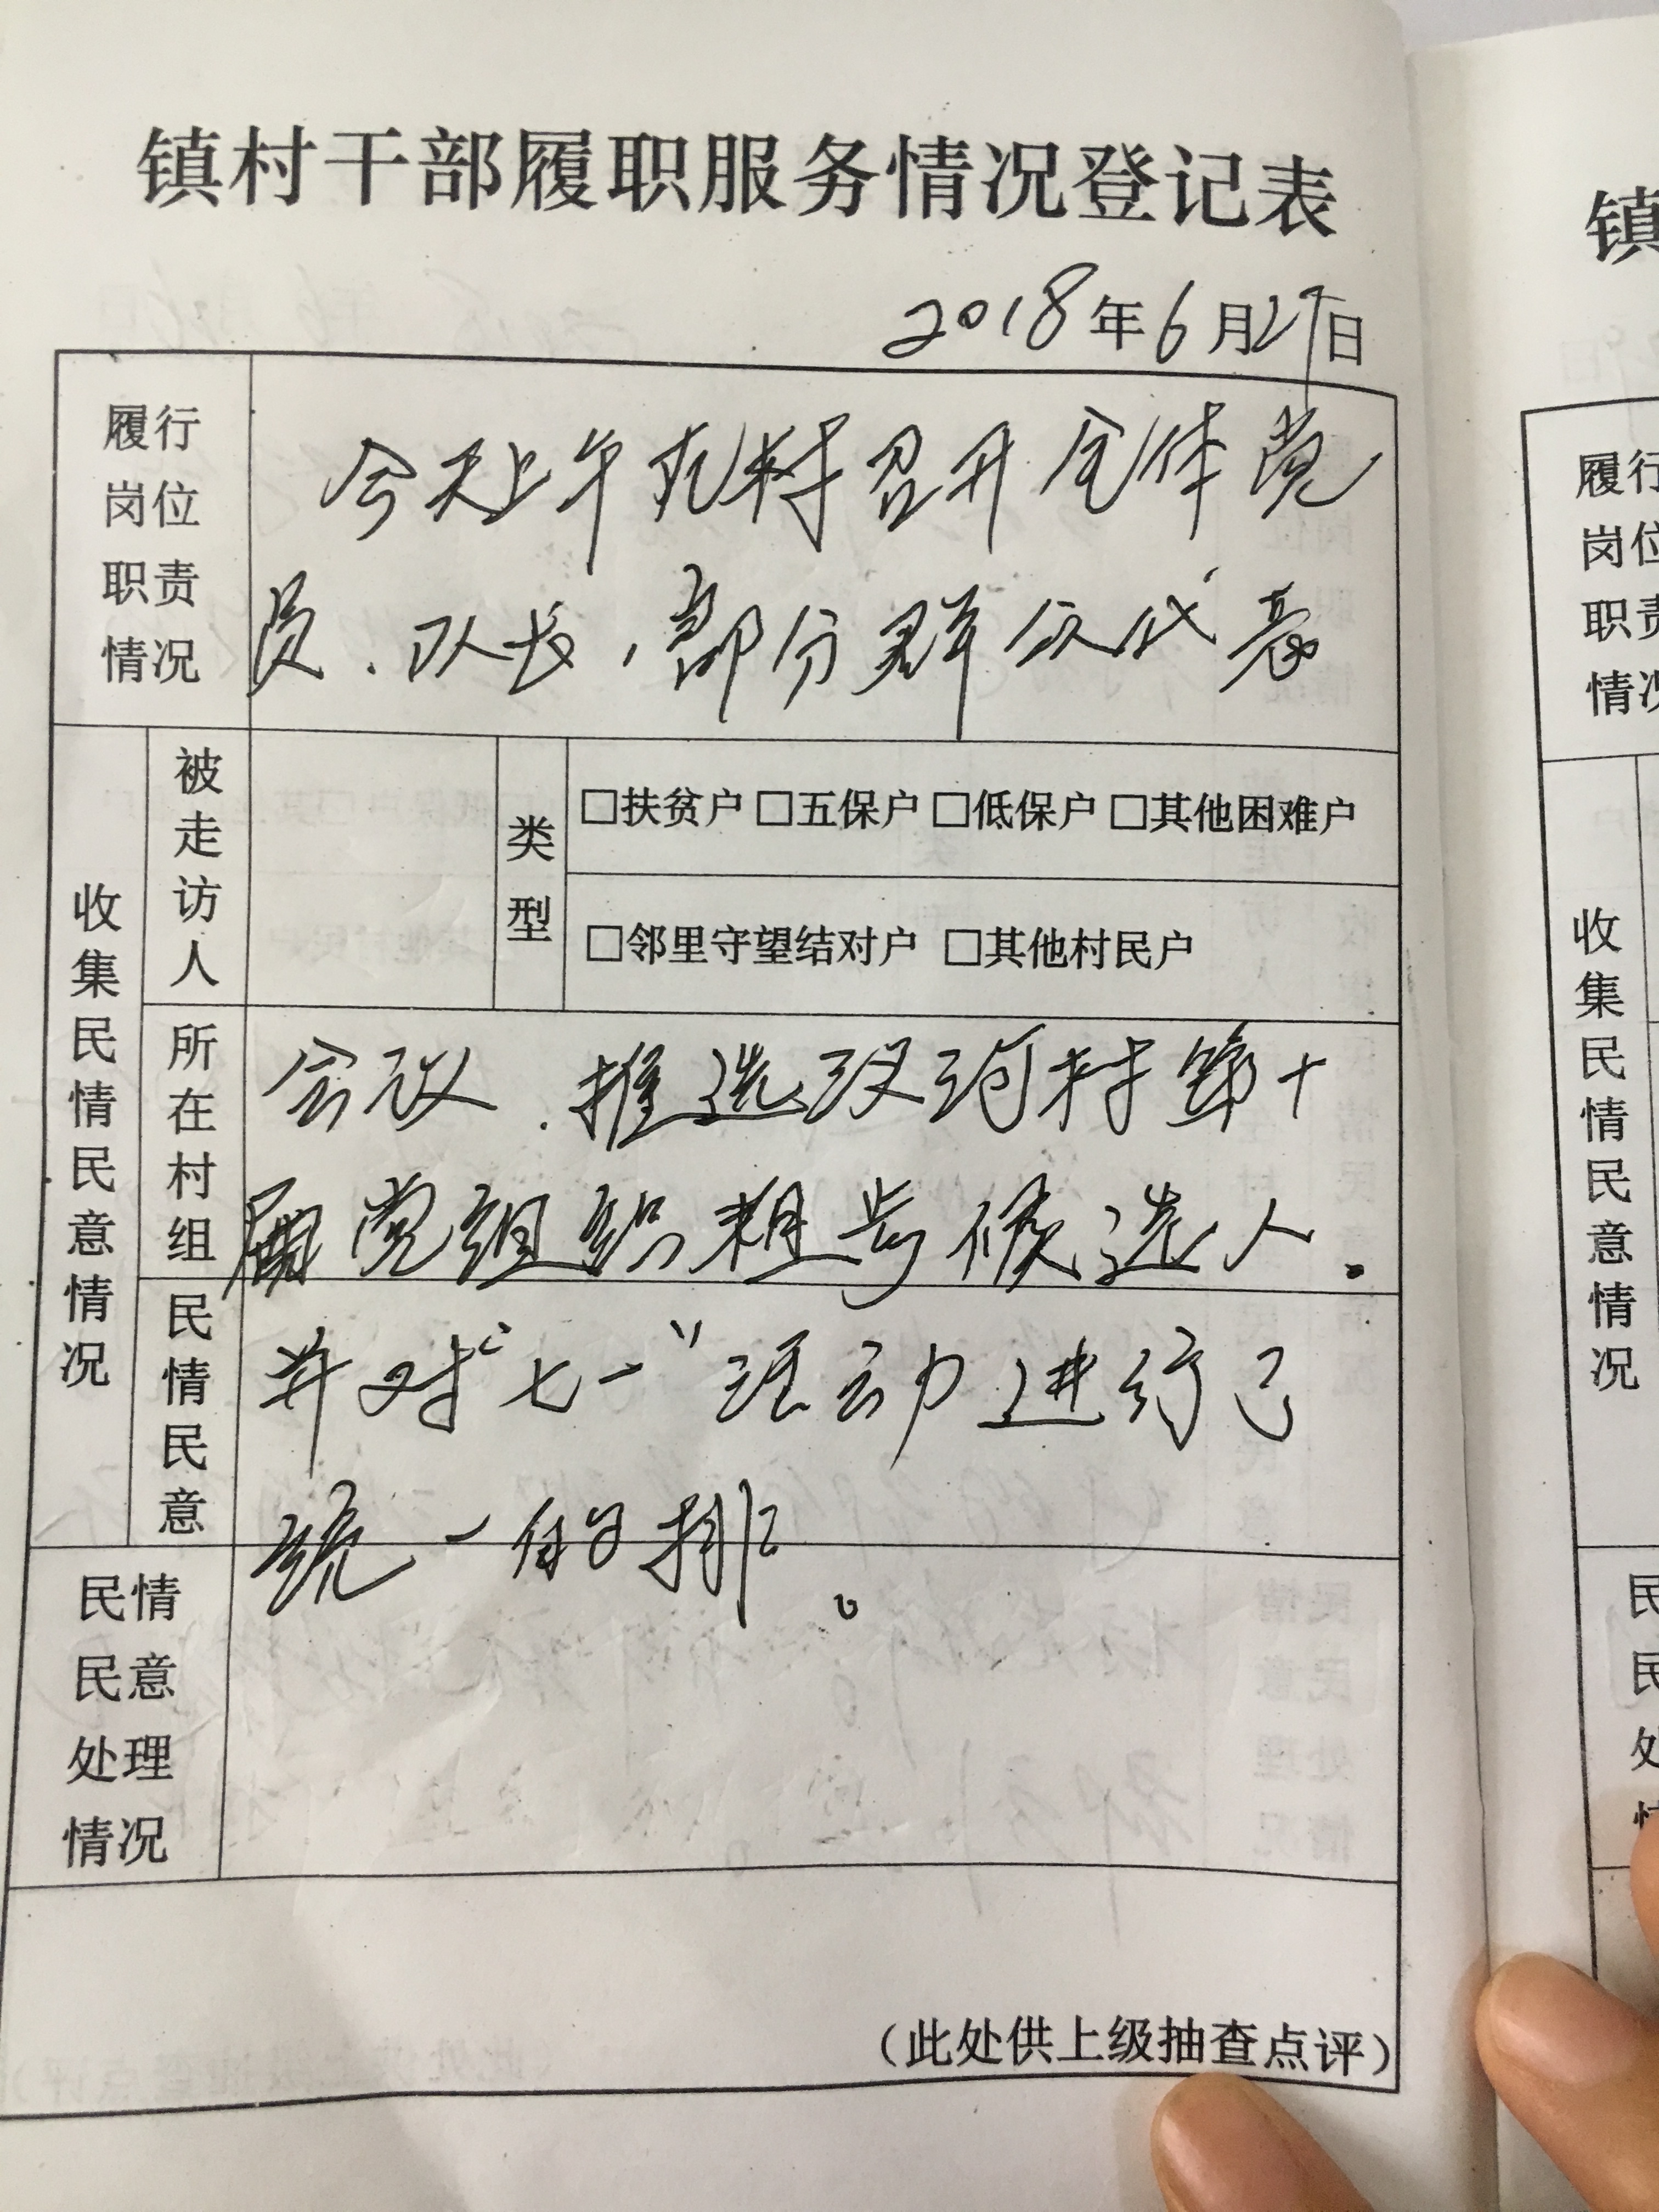 镇村干部履职服务情况登记表
2018年6月27日
履行岗位职责情况
今天上午在村召开全体党
员、队长、部分群众代表
收集民情民意情况
被走访人
类型
□扶贫户 □五保户 □低保户 □其他困难户
□邻里守望结对户 □其他村民户
所在村组
会议.推选汉河村第十
届党组织初步候选人.
民情民意
并对"七一"活动进行了
统一的安排。
民情民意处理情况
(此处供上级抽查点评)
镇
履行
岗位
职责
情况
收集民情民意情况